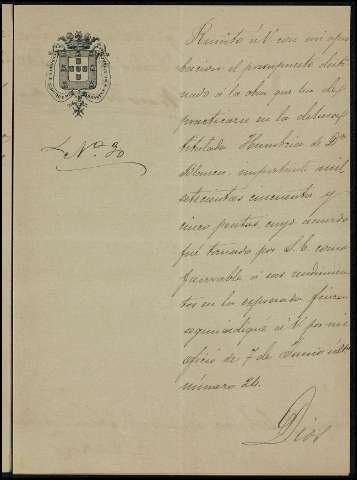 Nº 30
Remito á V con mi apro
bacion el presupuesto desti
nado á la obra que ha de
practicarse en la dehesa
titulada Humbria de Dª
Blanca, importante mil
setecientas cincuenta y
cinco pesetas, cuyo acuerdo
fué tomado por S. E. como
favorable á los rendimien
tos en la expresada finca
segun indiqué á V por mi
oficio de 7 de Junio ultº
número 24.
Dios